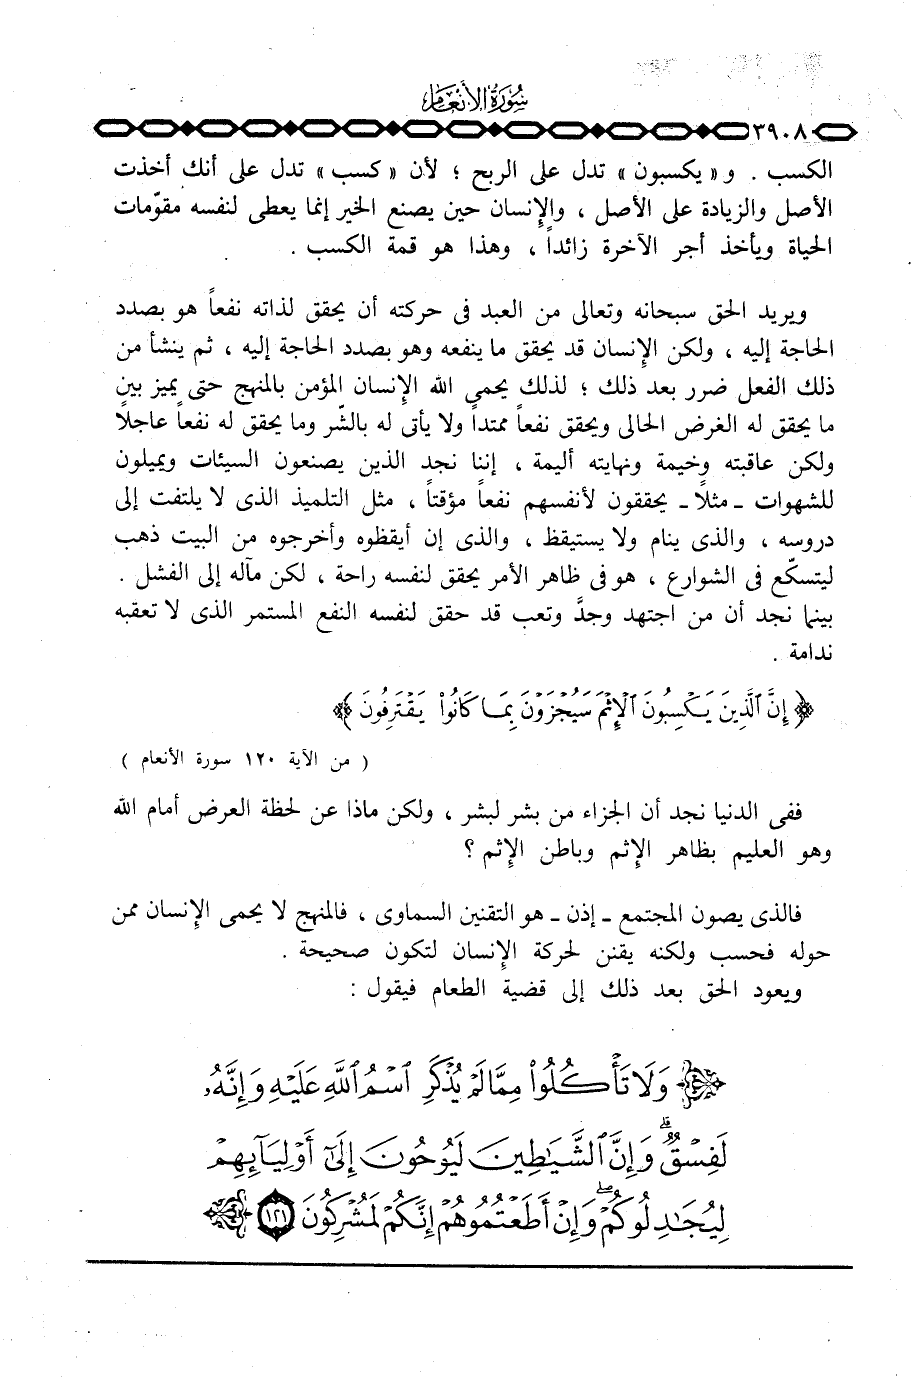 سورة الأنعام
٣٩٠٨
الكسب . و « يكسبون » تدل على الربح ؛ لأن « كسب » تدل على أنك أخذت
الأصل والزيادة على الأصل ، والإنسان حين يصنع الخير إنما يعطى لنفسه مقوّمات
الحياة ويأخذ أجر الآخرة زائداً ، وهذا هو قمة الكسب .
ويريد الحق سبحانه وتعالى من العبد فى حركته أن يحقق لذاته نفعاً هو بصدد
الحاجة إليه ، ولكن الإنسان قد يحقق ما ينفعه وهو بصدد الحاجة إليه ، ثم ينشأ من
ذلك الفعل ضرر بعد ذلك ؛ لذلك يحمى الله الإنسان المؤمن بالمنهج حتى يميز بين
ما يحقق له الغرض الحالى ويحقق نفعاً ممتداً ولا يأتى له بالشّر وما يحقق له نفعاً عاجلاً
ولكن عاقبته وخيمة ونهايته أليمة ، إننا نجد الذين يصنعون السيئات ويميلون
للشهوات ـ مثلاً ـ يحققون لأنفسهم نفعاً مؤقتاً ، مثل التلميذ الذى لا يلتفت إلى
دروسه ، والذى ينام ولا يستيقظ ، والذى إن أيقظوه وأخرجوه من البيت ذهب
ليتسكّع فى الشوارع ، هو فى ظاهر الأمر يحقق لنفسه راحة ، لكن مآله إلى الفشل .
بينما نجد أن من اجتهد وجدَّ وتعب قد حقق لنفسه النفع المستمر الذى لا تعقبه
ندامة .
﴿ إِنَّ ٱلَّذِينَ يَكْسِبُونَ ٱلْإِثْمَ سَيُجْزَوْنَ بِمَا كَانُوا۟ يَقْتَرِفُونَ ﴾
( من الآية ١٢٠ سورة الأنعام )
ففى الدنيا نجد أن الجزاء من بشر لبشر ، ولكن ماذا عن لحظة العرض أمام الله
وهو العليم بظاهر الإثم وباطن الإثم ؟
فالذى يصون المجتمع ـ إذن ـ هو التقنين السماوى ، فالمنهج لا يحمى الإنسان ممن
حوله فحسب ولكنه يقنن لحركة الإنسان لتكون صحيحة .
ويعود الحق بعد ذلك إلى قضية الطعام فيقول :
﴿ وَلَا تَأْكُلُوا۟ مِمَّا لَمْ يُذْكَرِ ٱسْمُ ٱللَّهِ عَلَيْهِ وَإِنَّهُۥ
لَفِسْقٌ ۗ وَإِنَّ ٱلشَّيَٰطِينَ لَيُوحُونَ إِلَىٰٓ أَوْلِيَآئِهِمْ
لِيُجَٰدِلُوكُمْ ۖ وَإِنْ أَطَعْتُمُوهُمْ إِنَّكُمْ لَمُشْرِكُونَ ١٢١ ﴾